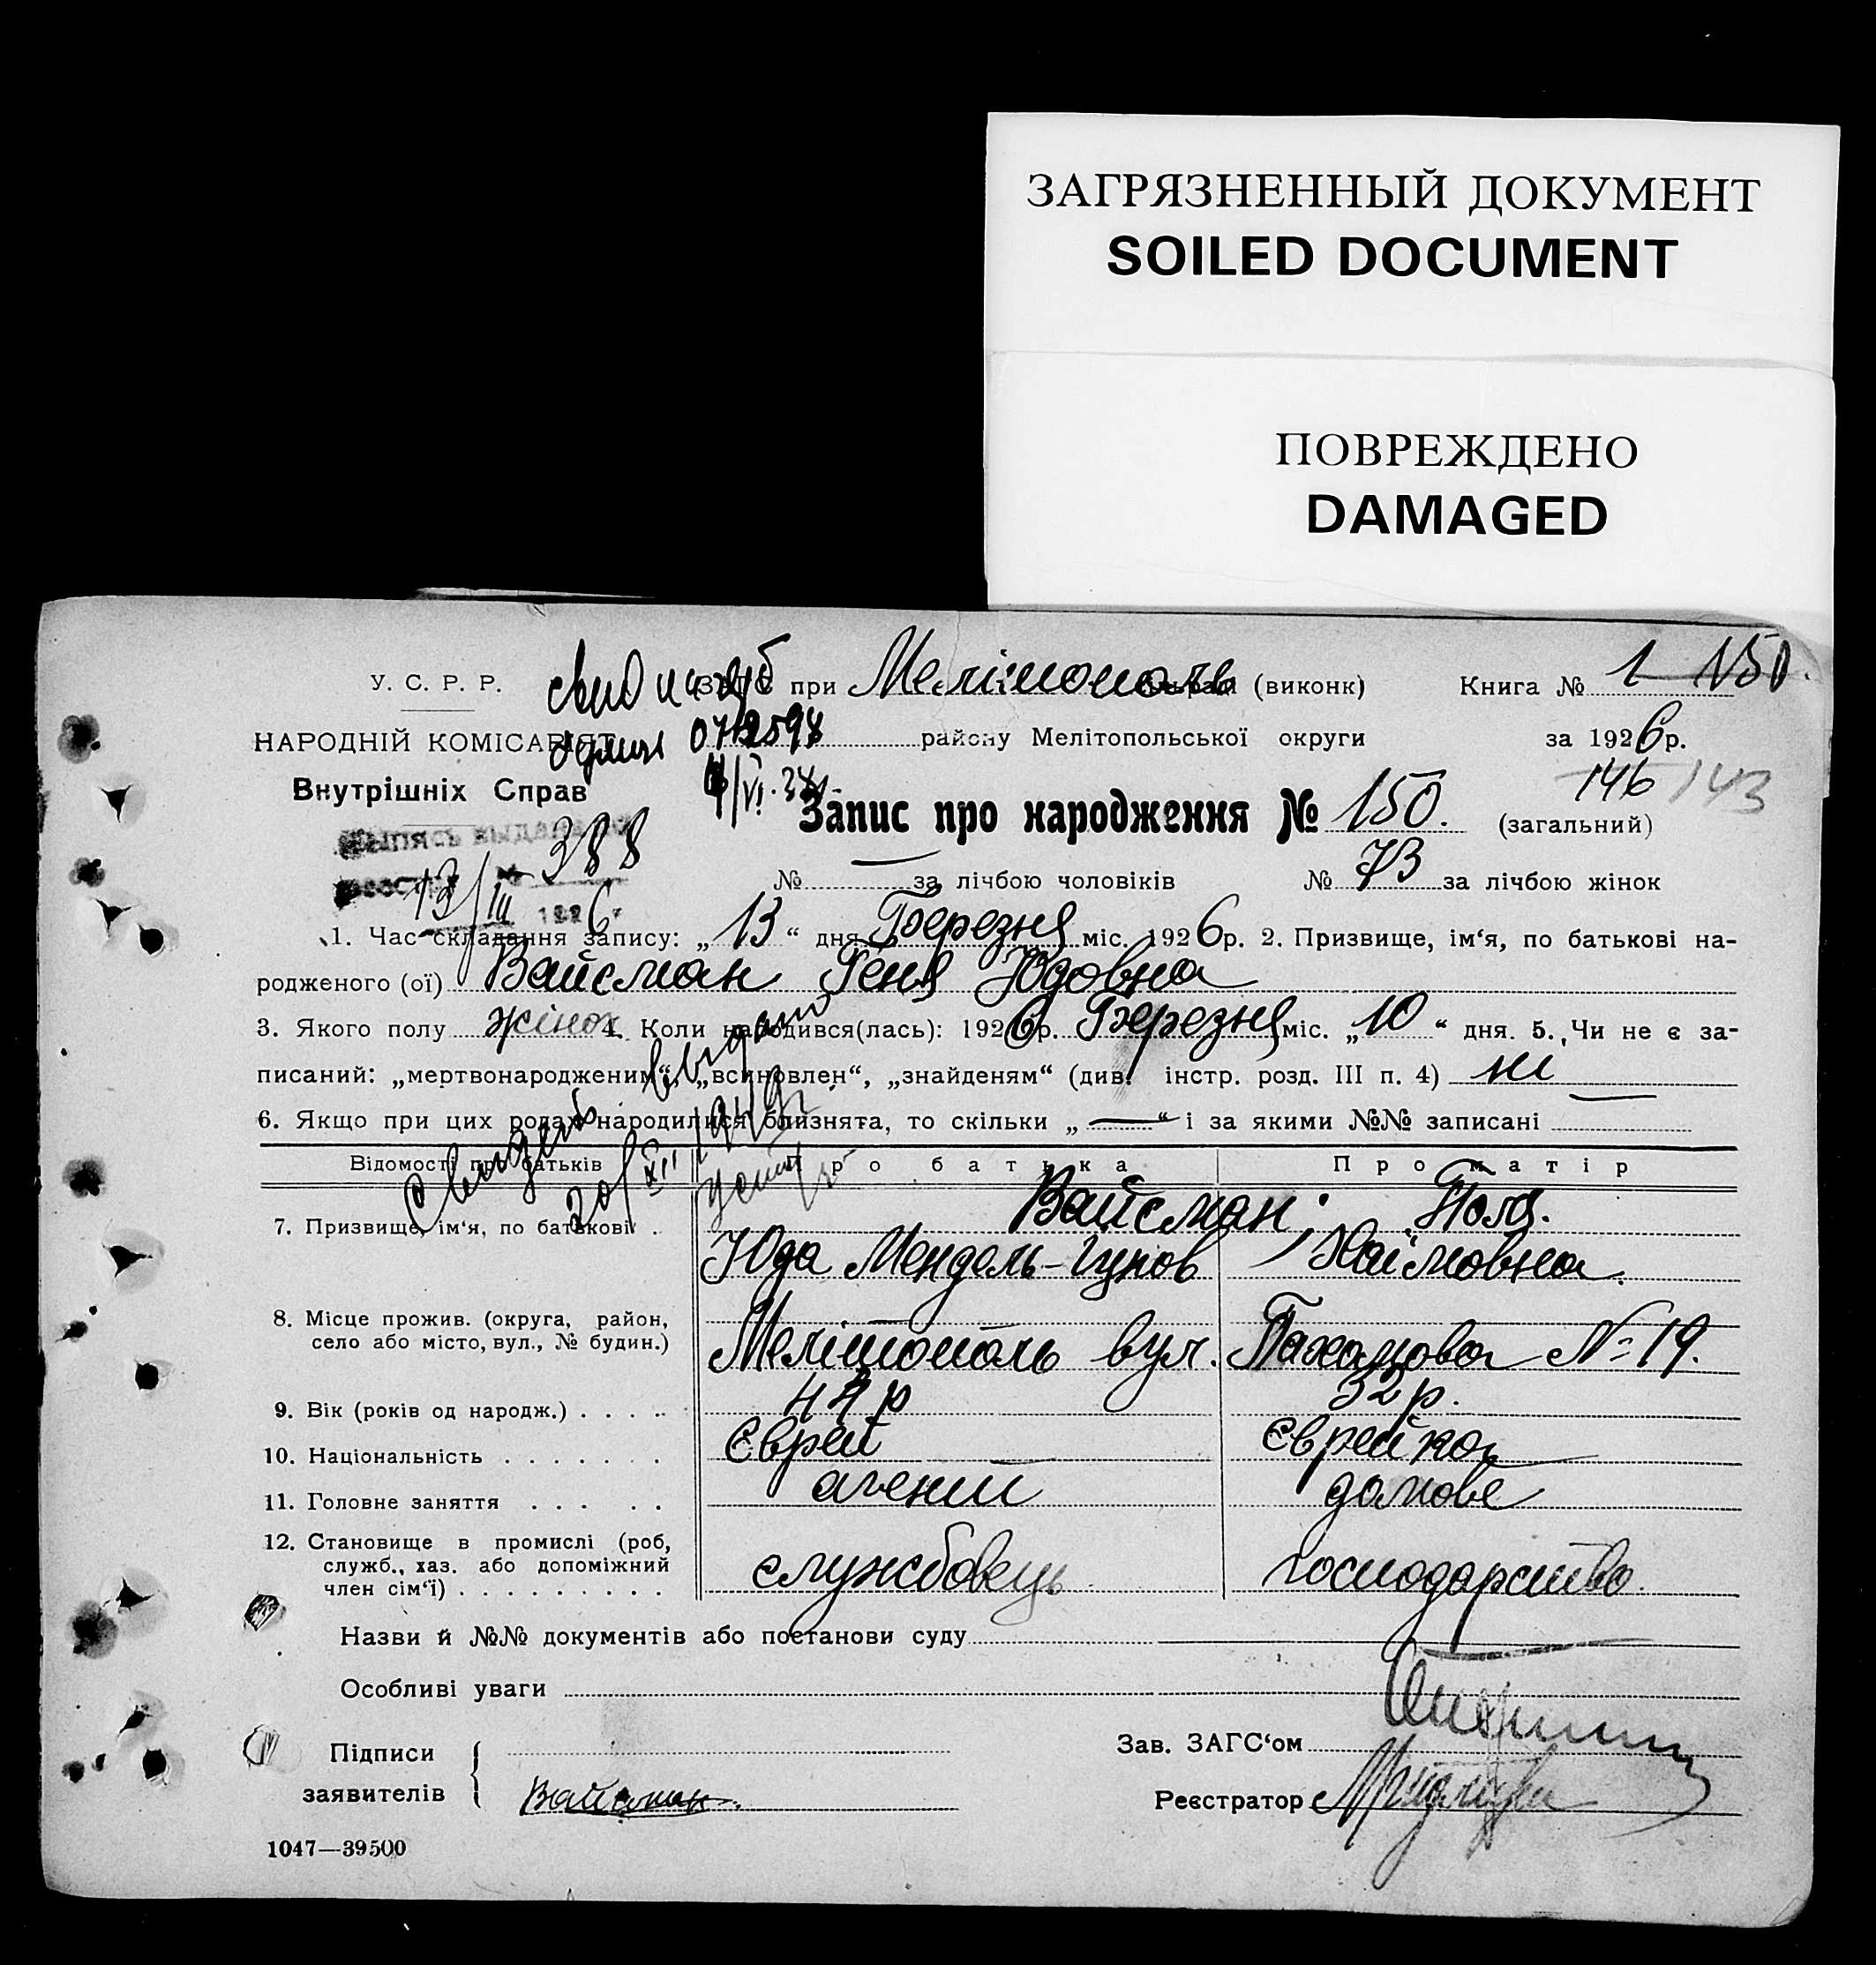 ЗАГРЯЗНЕННЫЙ ДОКУМЕНТ
SOILED DOCUMENT
ПОВРЕЖДЕНО
DAMAGED
У. С. Р. Р.
ЗАГС при Мелітополь (виконк) Книга № 1 150
НАРОДНІЙ КОМІСАРІЯТ
072598 району Мелітопольської округи за 1926 р.
Внутрішніх Справ
146 143
Запис про народження № 150. (загальний)
Выпись выдана
388
13/III 1926
№ — за лічбою чоловіків № 73 за лічбою жінок
1. Час складання запису: „13“ дня Березня міс. 1926 р. 2. Призвище, ім‘я, по батькові на-
родженого (ої) Вайсман Геня Юдовна
3. Якого полу жіноч 4. Коли народився(лась): 1926 р. Березня міс. „10“ дня. 5. Чи не є за-
писаний: „мертвонародженим“, „всиновлен“, „знайденям“ (див. інстр. розд. III п. 4) ні
6. Якщо при цих родах народилися близнята, то скільки „—“ і за якими №№ записані
Свидет выдано
20/XII
Відомості про батьків Про батька Про матір
7. Призвище, ім‘я, по батькові Вайсман Поля.
Юда Мендель- Хаймовна.
8. Місце прожив. (округа, район,
село або місто, вул., № будин.) Мелітополь вул. №19.
9. Вік (років од народж.) . . . . 44 р 32 р.
10. Національність . . . . . . . Єврей Єврейка
11. Головне заняття . . . . . агент домове
12. Становище в промислі (роб,
служб., хаз. або допоміжний
член сім‘ї) . . . . . . . . . службовець господарство.
Назви й №№ документів або постанови суду
Особливі уваги
Підписи
заявителів Вайсман
Зав. ЗАГС‘ом
Реєстратор
1047—39500